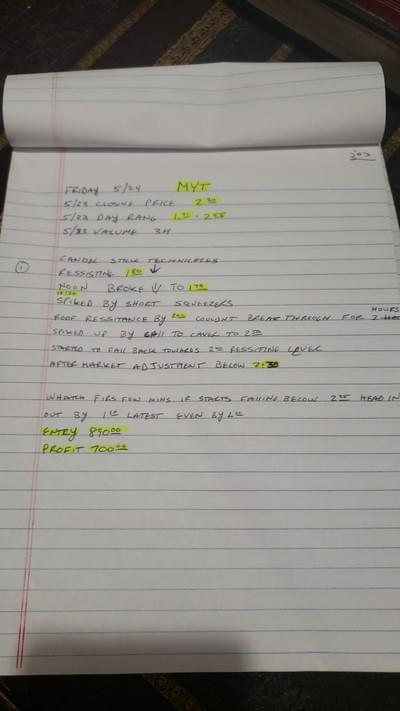 FRIDAY 5/24 MYT
5/23 CLOSING PRICE 2.30
5/23 DAY RANG -
5/23 VALUME 3M
①
CANDEL STICK TECHNICLEES
RESSISTING 1.80 ↓
NOON BROKE ↓ TO
SPIKED BY SHORT SQUEEZERS
ROOF RESSITANCE BY COULDNT BREAK THROUGH FOR 2 HOURS
SPIKED UP BY TO CAVER TO
STARTED TO FALL BACK TOWARDS RESSITING LEVER
AFTER MARKET ADJUSTMENT BELOW 2.30
WHATCH FIRS FEW MINS IF STARTS FALLING BELOW HEAD IN
OUT BY LATEST EVEN BY
ENTRY 890.00
PROFIT 700.00